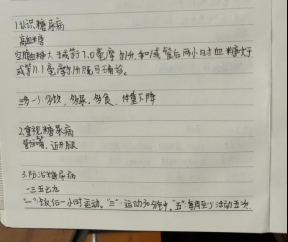 1.认识糖尿病
高血糖
空腹血糖大于或等于7.0毫摩尔/升,和/或餐后两小时血糖大于
或等于11.1毫摩尔/升既可确诊。
三多一少:多饮,多尿,多食,体重下降
2.重视糖尿病
管住嘴,迈开腿
3.防治糖尿病
一三五七九
"一"饭后一小时运动。"三":运动30分钟。"五":每周至少活动五次